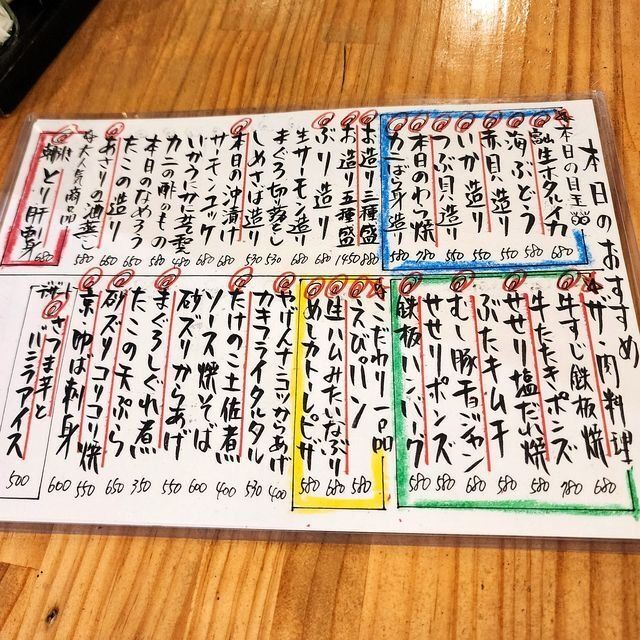 本日のおすすめ
本日の目玉品
生ホタルイカ 680
海ぶどう 580
赤貝造り 550
いか造り 550
つぶ貝造り 550
本日のわら焼 780
カニばら身造り 580
お造り三種盛 880
お造り五種盛 1450
ぶり造り 680
生サーモン造り 680
まぐろ切り落とし 680
しめさば造り 530
本日の沖漬け 530
サーモンユッケ 680
いかうにかに雲 680
カニの酢のもの 480
本日のなめろう 580
たこの造り 550
あさりの酒蒸し 660
大人気商品
とり肝刺身 680
ザ・肉料理
牛すじ鉄板焼 680
牛たたきポンズ 780
せせり塩だれ焼 580
ぶたキムチ 580
むし豚チョジャン 580
せせりポンズ 580
鉄板ハンバーグ 580
こだわり一品
えびパン 580
生ハムみたいなぶり 680
めんカトーレピザ 580
やげんナンコツからあげ 400
カキフライタルタル 530
たけのこ土佐煮 400
ソース焼そば 600
砂ズリからあげ 550
まぐろしぐれ煮 350
たこの天ぷら 650
砂ズリコリコリ焼 550
京ゆば刺身 600
デザート
さつま芋と
バニラアイス
500